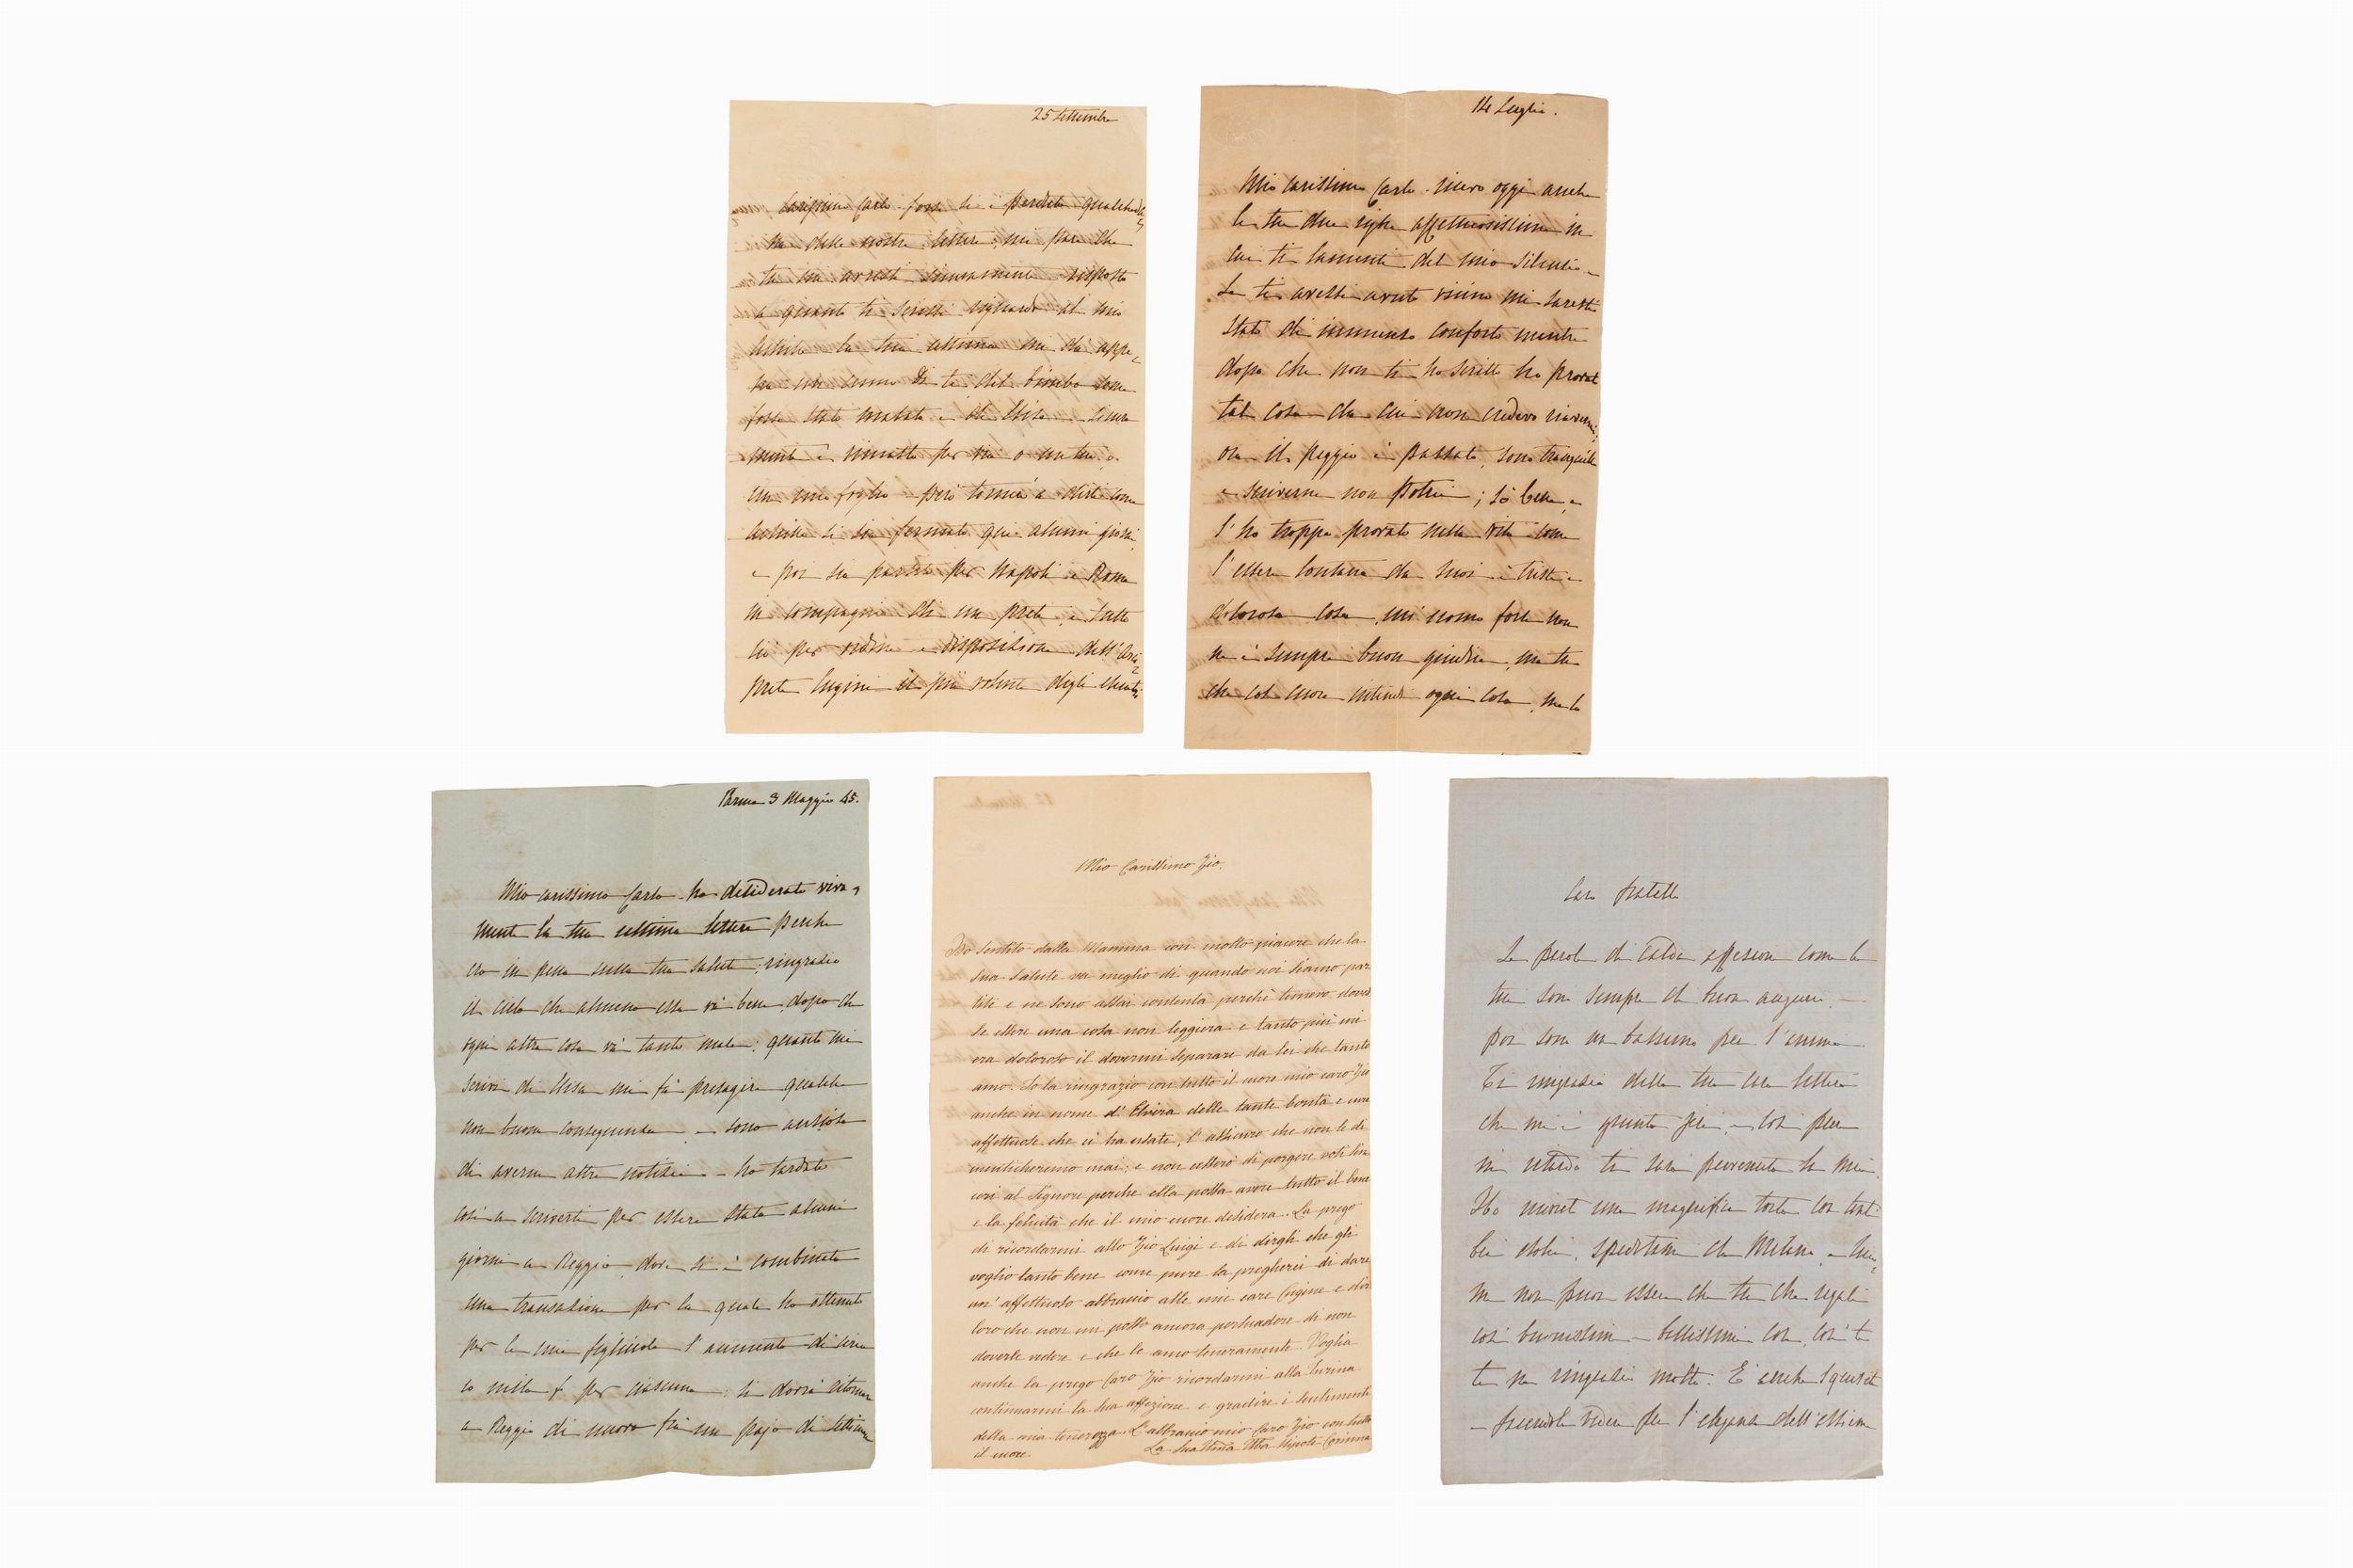 25 Settembre
Carissimo Carlo forse si è perduta qualchedu
na delle nostre lettere, mi pare che
tu mi avresti sicuramente risposto
a quanto ti scrissi riguardo al mio
Achille la tua ultima mi dà appe
na un cenno di te, del bimbo come
fosse stato malato e di Elisa
è rimasta per via o un tuo, o
un mio foglio però tornerò a dirti come
Achille si sia fermato qui alcuni giorni,
e poi sia partito per Napoli e Roma
in compagnia di un prete, e tutto
ciò per ordine e disposizione dell'Arci
prete Cugini il più volente degli
14 Luglio.
Mio carissimo Carlo ricevo oggi anche
le tue due righe affettuosissime in
cui ti lamenti del mio silenzio
Se ti avessi avuto vicino mi saresti
stato di immenso conforto mentre
dopo che non ti ho scritto ho provat
tal cosa da cui non credevo riavermi,
ora il peggio è passato, sono tranquilla
e scriverne non potrei; so bene, e
l'ho troppo provato nella vita come
l'essere lontana da suoi è trista e
dolorosa cosa, un uomo forse non
ne è sempre buon giudice, ma tu
che col cuore intendi ogni cosa, me lo
Parma 3 Maggio 45.
Mio carissimo Carlo ho desiderato viva
mente la tua ultima lettera perche
ero in pena sulla tua salute; ringrazio
il cielo che almeno essa và bene, dopo che
ogni altra cosa và tanto male; quanto mi
scrivi di Elisa mi fà presagire qualche
non buona conseguenza e sono ansiosa
di averne altre notizie ho tardato
così a scriverti per essere stata alcuni
giorni a Reggio dove si è combinata
una transazione per la quale ho ottenuto
per le mie figliuole l'aumento di circa
mila f per ciascuna: si dovrà ritornare
a Reggio di nuovo frà un pajo di settimane
Mio Carissimo Zio.
Ho sentito dalla Mamma con molto piacere che la
sua salute va meglio di quando noi siamo par
titi e ne sono assai contenta perchè temevo doves
se essere una cosa non leggiera e tanto più mi
era doloroso il dovermi separare da lei che tanto
amo. Io la ringrazio con tutto il cuore mio caro Zio
anche in nome d'Elvira delle tante bontà e cure
affettuose che ci ha usate, l'assicuro che non le di
menticheremo mai; e non cesserò di porgere voti sin
ceri al Signore perche ella possa avere tutto il bene
e la felicità che il mio cuore desidera. La prego
di ricordarmi allo Zio Luigi e di dirgli che gli
voglio tanto bene come pure la pregherei di dare
un' affettuoso abbraccio alle mie care Cugine e dir
loro che non mi posso ancora persuadere di non
doverle vedere e che le amo teneramente. Voglia
anche la prego Caro Zio ricordarmi alla
continuarmi la sua affezione e gradire i sentimenti
della mia tenerezza. L'abbraccio mio Caro Zio con tutto
il cuore. La Sua Nipote Corinna
Caro fratello
Le parole di calda affezione come le
tue sono sempre di buon augurio
poi sono un balsamo per l'anima
Ti ringrazio della tua cara lettera
che mi è giunta jeri, e così pure
in ritardo ti sarà pervenuta la mia.
Ho ricevut una magnifica torta con tanti
bei dolci, speditami da Milano e
non puoi essere che tu che regali
così buonissime e bellissime cose, così
te ne ringrazio molto. È anche squisit
facendola vedere per l'eleganza dell'